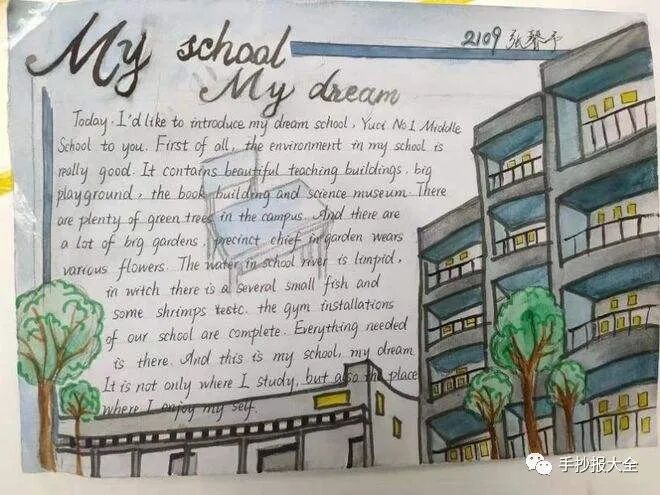 My school
2109 张馨予
My dream
Today, I'd like to introduce my dream school, Yuci No 1 Middle
School to you. First of all, the environment in my school is
really good. It contains beautiful teaching buildings, big
playground, the book building and science museum. There
are plenty of green trees in the campus. And there are
a lot of big gardens, precinct chief in garden wears
various flowers. The water in school river is limpid,
in witch there is a several small fish and
some shrimps testc. the gym installations
of our school are complete. Everything needed
is there. And this is my school, my dream
It is not only where I study, but also the place
where I enjoy my self.
手抄报大全